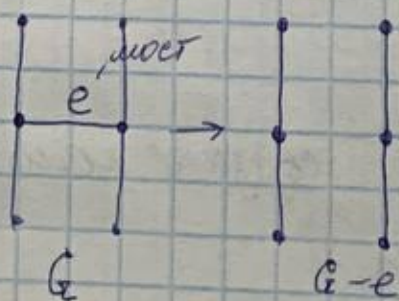 мост
e
G G-e